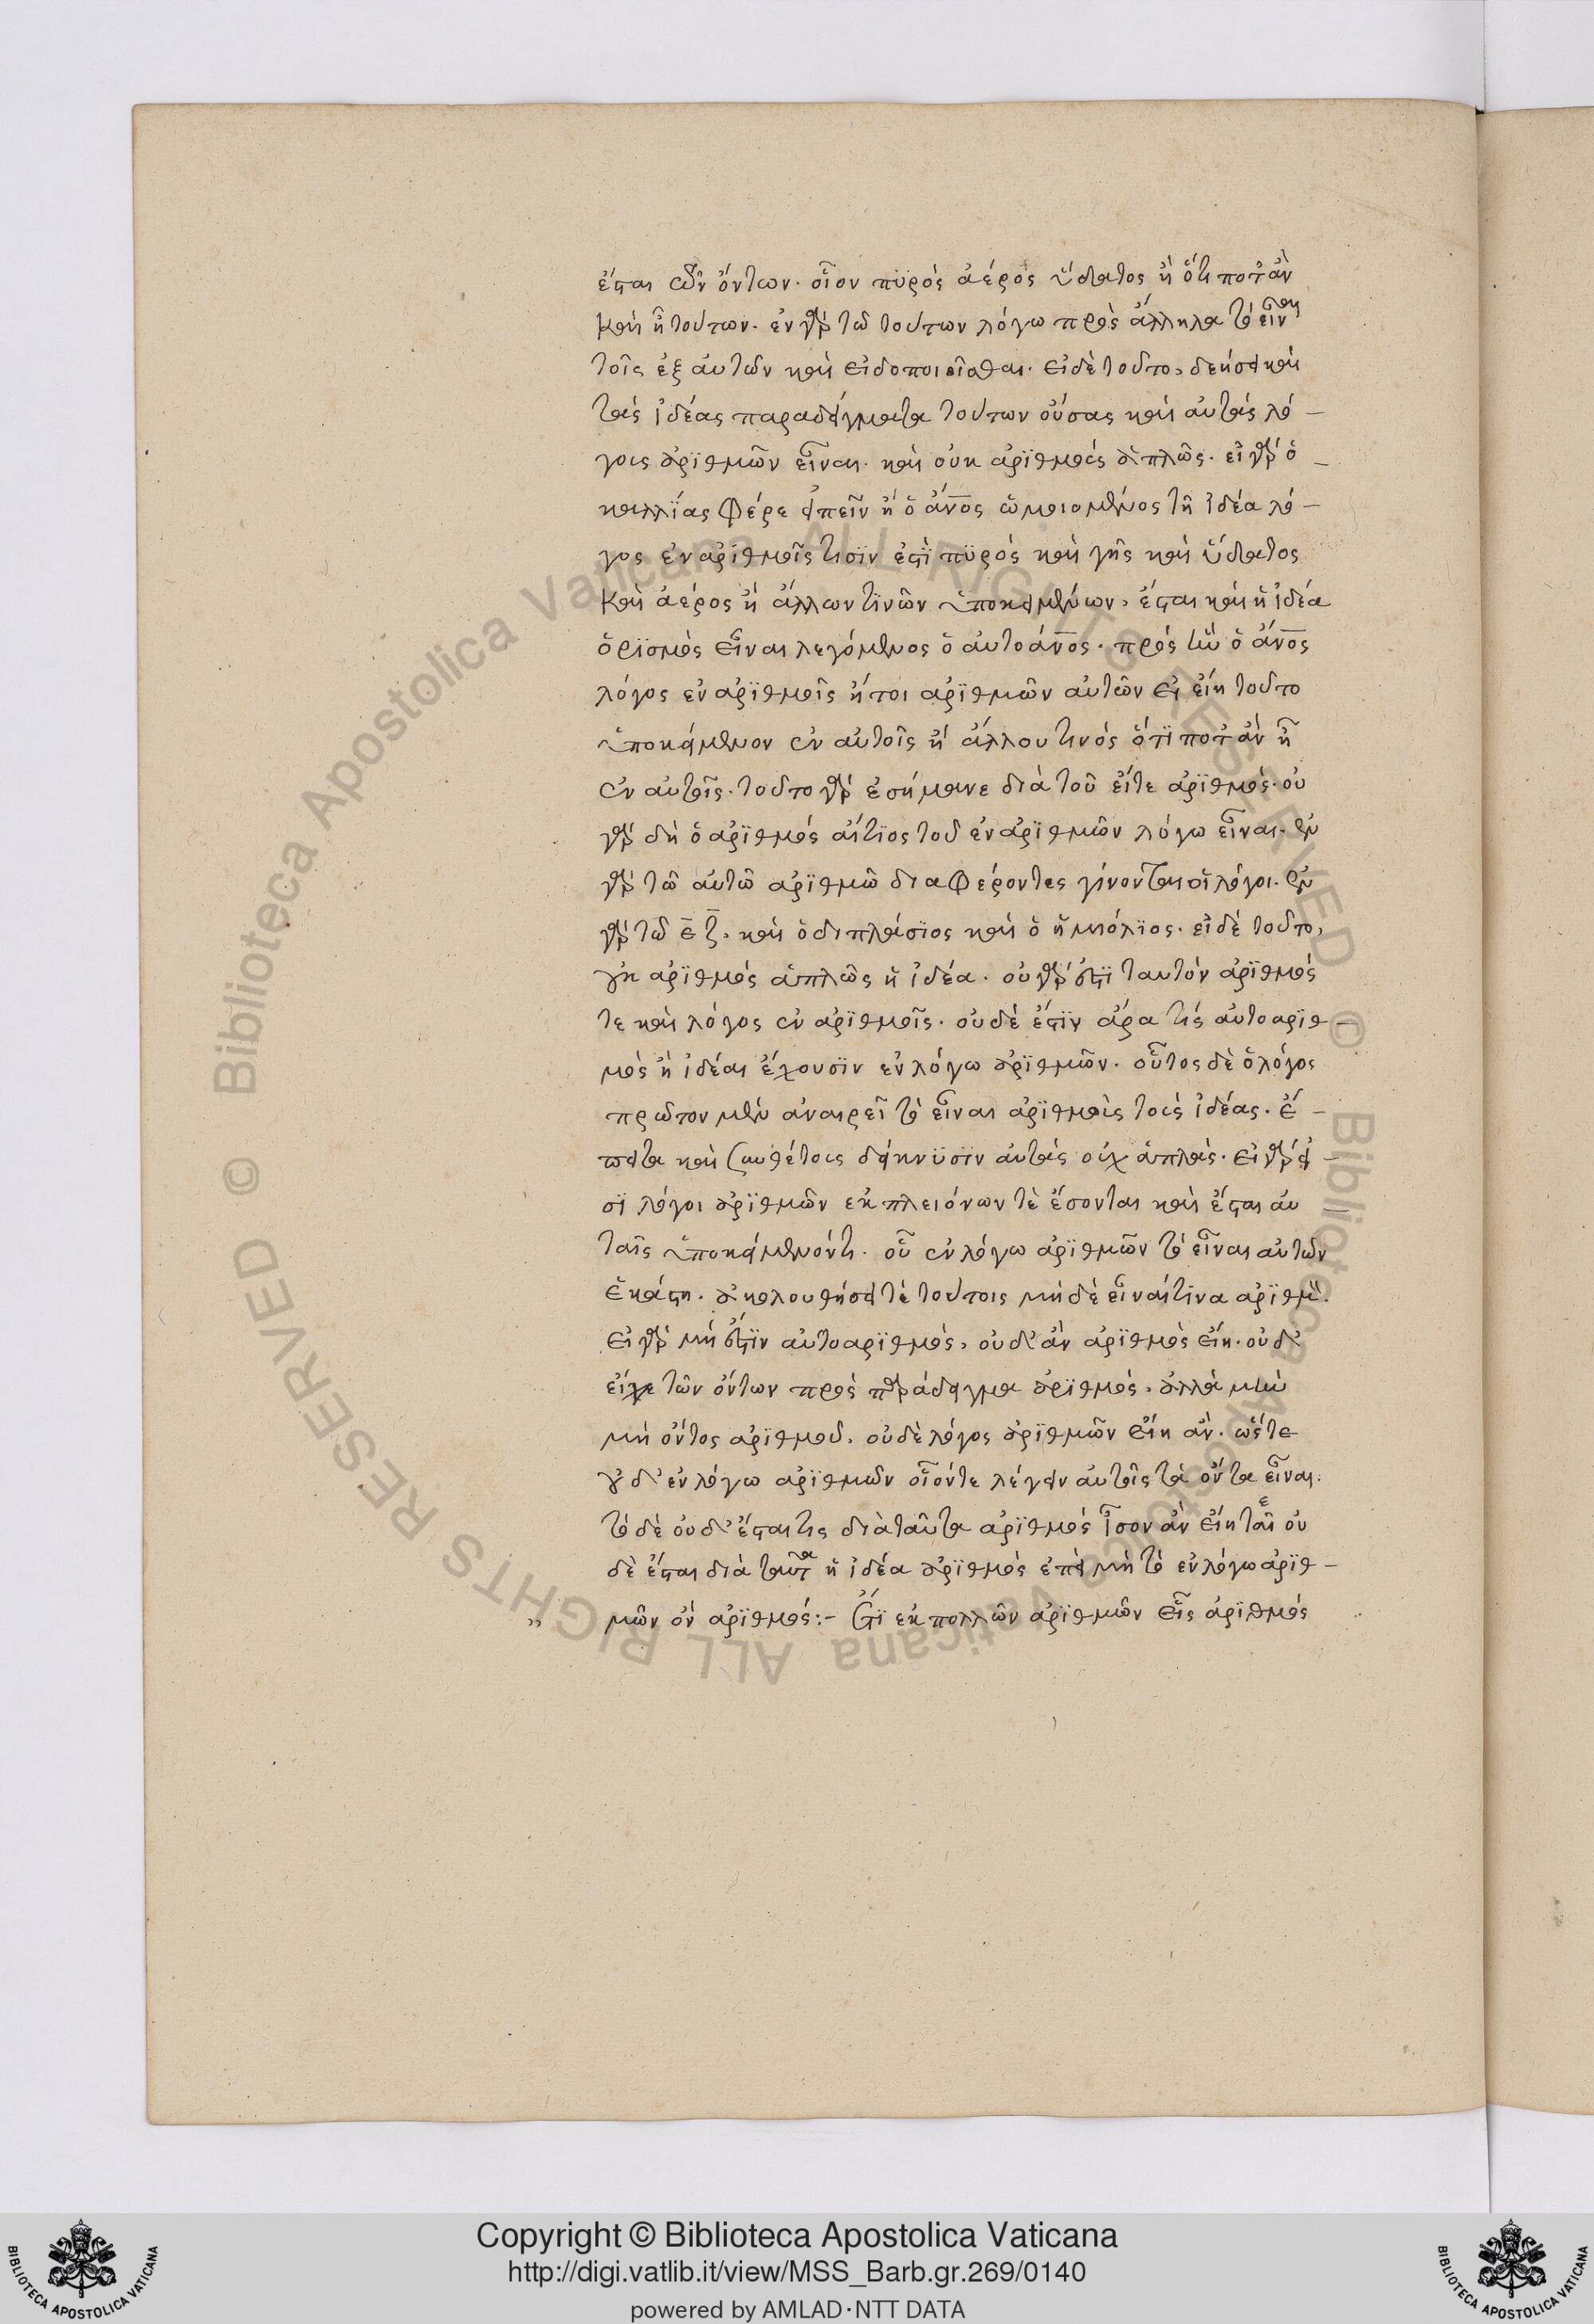 ἔσται τῶν ὄντων. οἷον πϋρὸς ἀέρος ὕδατος ἢ ὅτι ποτ' ἂν
καὶ ᾖ τούτων. ἐν γὰρ τῶ τούτων λόγω πρὸς ἄλληλα τὸ εἶναι
τοῖς ἐξ αὐτῶν καὶ εἰδοποιεῖσθαι. εἰ δὲ τοῦτο, δεήσει καὶ
τὰς ἰδέας παραδείγματα τούτων οὔσας καὶ αὐτὰς λό –
γους ἀρϊθμῶν εἶναι. καὶ οὐκ ἀρϊθμοὺς ἁπλῶς. εἰ γὰρ ὁ –
καλλΐας φέρε εἰπεῖν ἢ ὁ ἄνος ὡμοιομένος τῆ ἰδέα λό –
γος ἐν ἀρϊθμοῖς τισϊν ἐστϊ πϋρὸς καὶ γῆς καὶ ὕδατος
καὶ ἀέρος ἢ ἄλλων τϊνῶν ὑποκειμένων, ἔσται καὶ ἡ ἰδέα
ὁρϊσμὸς εἶναι λεγόμενος ὁ αὐτοάνος. πρὸς ἣν ὁ ἄνος
λόγος ἐν ἀρϊθμοῖς ἤτοι ἀρϊθμῶν αὐτῶν εἰ εἴη τοῦτο
ὑποκείμενον ἐν αὐτοῖς ἢ ἄλλου τινὸς ὅτϊ ποτ' ἂν ᾖ
ἐν αὐτοῖς. τοῦτο γὰρ ἐσήμανε διὰ τοῦ εἴτε ἀρϊθμός. οὐ
γὰρ δὴ ὁ ἀρϊθμὸς αἴτϊος τοῦ ἐν ἀρϊθμῶν λόγω εἶναι. ἐν
γὰρ τῶ αὐτῶ ἀρϊθμῶ διαφέροντες γίνονται οἱ λόγοι. ἐν
γὰρ τῶ ε ζ. καὶ ὁ διπλάσϊος καὶ ὁ ἡμιόλϊος. εἰ δὲ τοῦτο,
οὐκ ἀρϊθμὸς ἁπλῶς ἡ ἰδέα. οὐ γάρ ἐστϊ ταυτὸν ἀρϊθμός
τε καὶ λόγος ἐν ἀρϊθμοῖς. οὐδὲ ἔστϊν ἄρα τίς αὐτοαρϊθ –
μὸς ἢ ἰδέαι ἔχουσϊν ἐν λόγω ἀρϊθμῶν. οὗτος δὲ ὁ λόγος
πρῶτον μὲν ἀναιρεῖ τὸ εἶναι ἀρϊθμοὺς τοὺς ἰδέας. ἔ –
πειτα καὶ συνθέτους δείκνϋσϊν αὐτὰς οὐχ ἁπλάς. εἰ γὰρ εἰ –
σϊ λόγοι ἀρϊθμῶν ἐκ πλειόνων τὲ ἔσονται καὶ ἔσται αὐ –
ταῖς ὑποκείμενόν τι. οὗ ἐν λόγω ἀρϊθμῶν τὸ εἶναι αὐτῶν
ἑκάστη. ἀκολουθήσει τὲ τούτοις μὴ δὲ εἶναί τϊνα ἀρϊθμόν.
εἰ γὰρ μή ἐστϊν αὐτοαρϊθμὸς, οὐδ' ἂν ἀρϊθμὸς εἴη. οὐδ'
εἴγε τῶν ὄντων πρὸς παράδειγμα ἀρϊθμός. ἀλλὰ μὴν
μὴ ὄντος ἀρϊθμοῦ, οὐδὲ λόγος ἀρϊθμῶν εἴη ἄν. ὥστε
οὐδ' ἐν λόγω ἀρϊθμῶν οἷόν τε λέγειν αὐτοῖς τὰ ὄντα εἶναι.
τὸ δὲ οὐδ' ἔσται τις διὰ ταῦτα ἀρϊθμὸς ἴσον ἂν εἴη τῶ οὐ
δὲ ἔσται διὰ ταῦτα ἡ ἰδέα ἀρϊθμὸς ἐπεὶ μὴ τὸ ἐν λόγω ἀρϊθ –
„ μῶν ὂν ἀρϊθμός:– Ἔτϊ ἐκ πολλῶν ἀρϊθμῶν εἷς ἀρϊθμὸς
© Biblioteca Apostolica Vaticana ALL RIGHTS RESERVED © Biblioteca Apostolica Vaticana ALL RIGHTS RESERVED
Copyright © Biblioteca Apostolica Vaticana
http://digi.vatlib.it/view/MSS_Barb.gr.269/0140
powered by AMLAD·NTT DATA
BIBLIOTECA APOSTOLICA VATICANA
BIBLIOTECA APOSTOLICA VATICANA